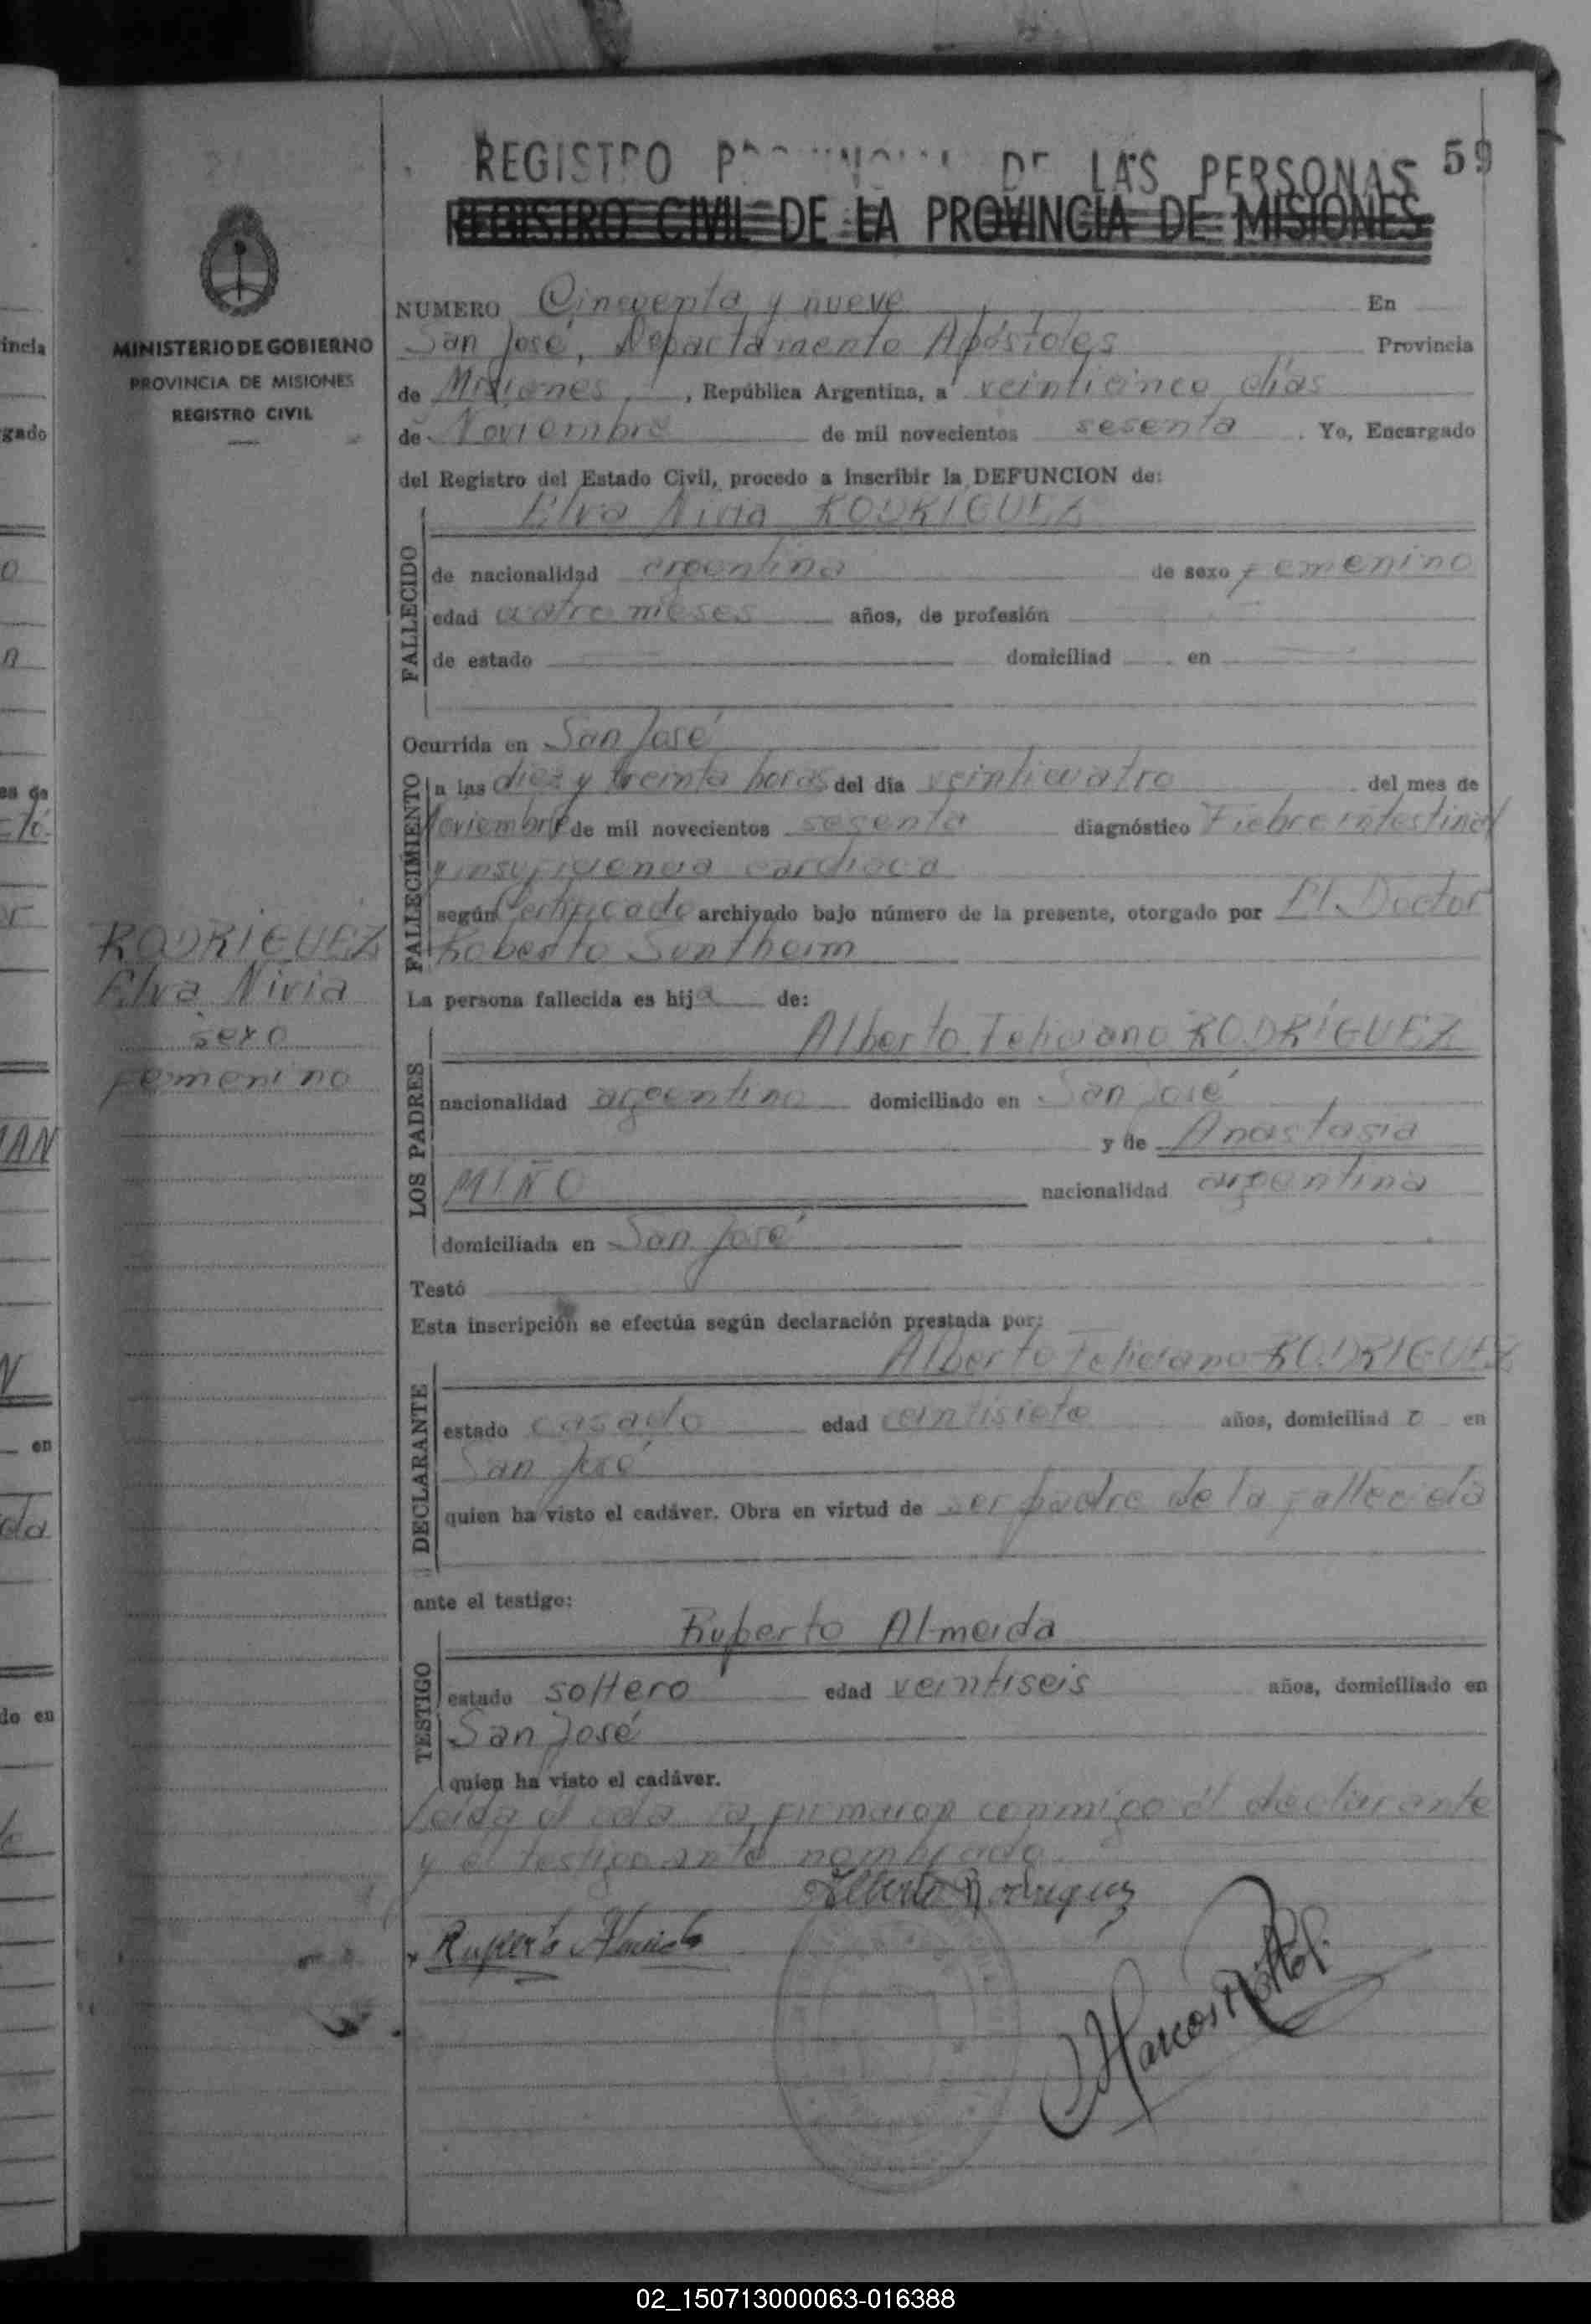 REGISTRO DE LAS PERSONAS 59
REGISTRO CIVIL DE LA PROVINCIA DE MISIONES
MINISTERIO DE GOBIERNO
PROVINCIA DE MISIONES
REGISTRO CIVIL
NUMERO Cincuenta y nueve En
San José, Departamento Apóstoles Provincia
de Misiones, República Argentina, a veinticinco días
de Noviembre de mil novecientos sesenta. Yo, Encargado
del Registro del Estado Civil, procedo a inscribir la DEFUNCION de:
Elva Nivia RODRIGUEZ
FALLECIDO
de nacionalidad argentina de sexo femenino
edad cuatro meses años, de profesión
de estado domiciliad en
Ocurrida en San José
FALLECIMIENTO
a las diez y treinta horas del día veinticuatro del mes de
Noviembre de mil novecientos sesenta diagnóstico Fiebre intestinal
y insuficiencia cardiaca
según Certificado archivado bajo número de la presente, otorgado por El Doctor
Roberto Sontheim
RODRIGUEZ
Elva Nivia
sexo
femenino
La persona fallecida es hija de:
LOS PADRES
Alberto Feliciano RODRÍGUEZ
nacionalidad argentina domiciliado en San José
y de Anastasia
MIÑO nacionalidad argentina
domiciliada en San José
Testó
Esta inscripción se efectúa según declaración prestada por:
DECLARANTE
Alberto Feliciano RODRIGUEZ
estado casado edad veintisiete años, domiciliad o en
San José
quien ha visto el cadáver. Obra en virtud de ser padre de la fallecida
ante el testigo:
TESTIGO
Ruperto Almeida
estado soltero edad veintiseis años, domiciliado en
San José
quien ha visto el cadáver.
Leida el acta la firmaron conmigo el declarante
y el testigo ante nombrado.
Alberto Rodriguez
Ruperto Almeida
Marcos
incia
gado
IAN
en
da
do en
02_150713000063-016388